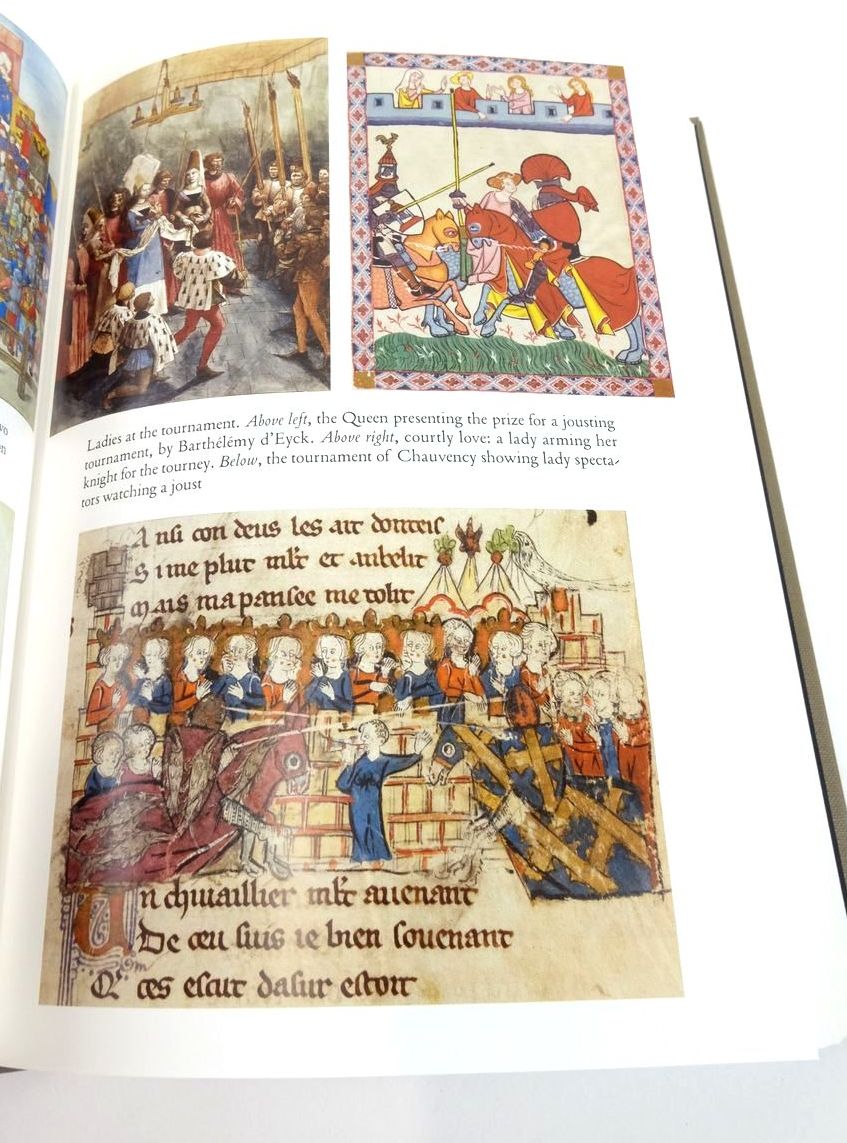 Ladies at the tournament. Above left, the Queen presenting the prize for a jousting
tournament, by Barthélémy d'Eyck. Above right, courtly love: a lady arming her
knight for the tourney. Below, the tournament of Chauvency showing lady specta-
tors watching a joust
A nsi con deus les ait
S i me plut ml't et anbelit
M ais ma pansee me tolit
Un chiuaillier ml't auenant
De ceu suis ie bien souenant
Q' ces escut dasur estoit